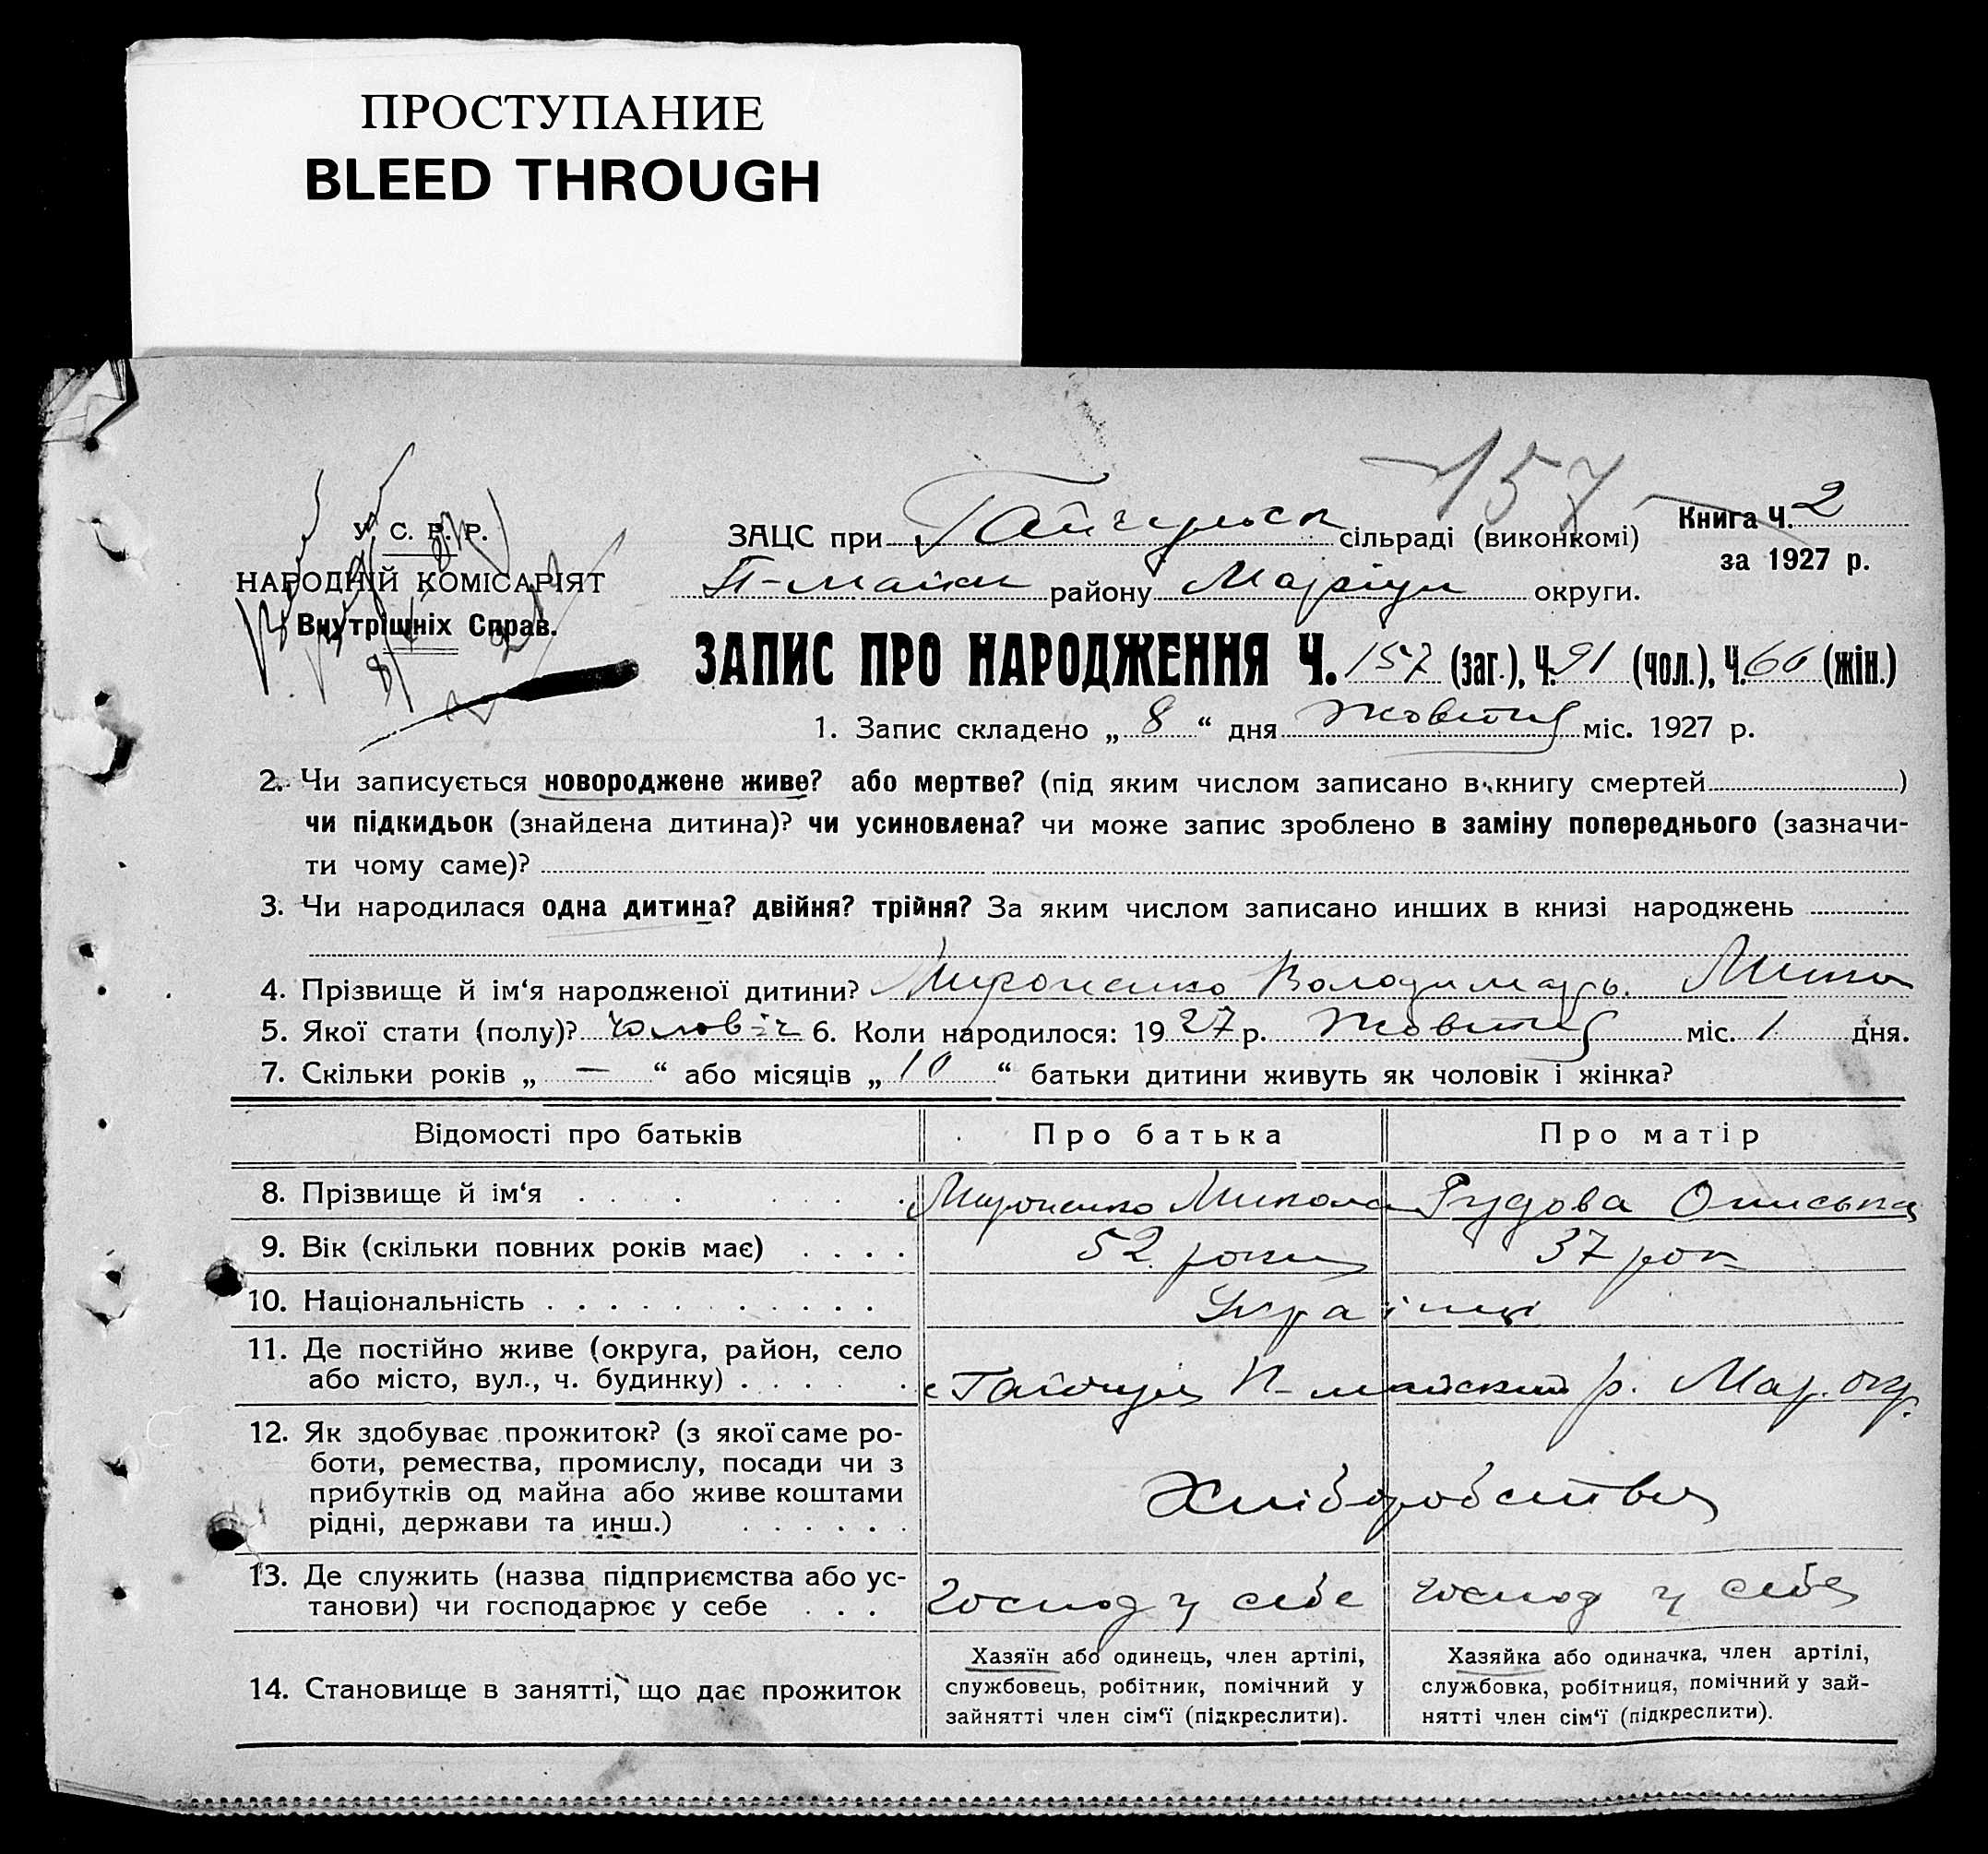 ПРОСТУПАНИЕ
BLEED THROUGH
157
У. С. Р. Р.
НАРОДНІЙ КОМІСАРІЯТ
Внутрішніх Справ.
ЗАЦС при Гайчульск сільраді (виконкомі)
Книга Ч. 2
за 1927 р.
П-майськ району Маріуп округи.
ЗАПИС ПРО НАРОДЖЕННЯ Ч. 157 (заг.), Ч. 91 (чол.), Ч. 66 (жін.)
1. Запис складено „ 8 “ дня Жовтня міс. 1927 р.
2. Чи записується новороджене живе? або мертве? (під яким числом записано в книгу смертей )
чи підкидьок (знайдена дитина)? чи усиновлена? чи може запис зроблено в заміну попереднього (зазначи-
ти чому саме)?
3. Чи народилася одна дитина? двійня? трійня? За яким числом записано инших в книзі народжень
4. Прізвище й ім‘я народженої дитини? Мироненко Володимарь Мико
5. Якої стати (полу)? чоловіч 6. Коли народилося: 1927 р. Жовтня міс. 1 дня.
7. Скільки років „ — “ або місяців „ 10 “ батьки дитини живуть як чоловік і жінка?
Відомості про батьків Про батька Про матір
8. Прізвище й ім‘я Мироненко Микола Рудова Ониська
9. Вік (скільки повних років має) 52 роки 37 рок
10. Національність Українці
11. Де постійно живе (округа, район, село
або місто, вул., ч. будинку) с Гайчул П-майский р. Мар. окр.
12. Як здобуває прожиток? (з якої саме ро-
боти, ремества, промислу, посади чи з
прибутків од майна або живе коштами
рідні, держави та инш.)
Хліборобство
13. Де служить (назва підприємства або ус-
танови) чи господарює у себе
господ у себе
господ у себе
14. Становище в занятті, що дає прожиток
Хазяїн або одинець, член артілі,
службовець, робітник, помічний у
зайнятті член сім‘ї (підкреслити).
Хазяйка або одиначка, член артілі,
службовка, робітниця, помічний у зай-
нятті член сім‘ї (підкреслити).